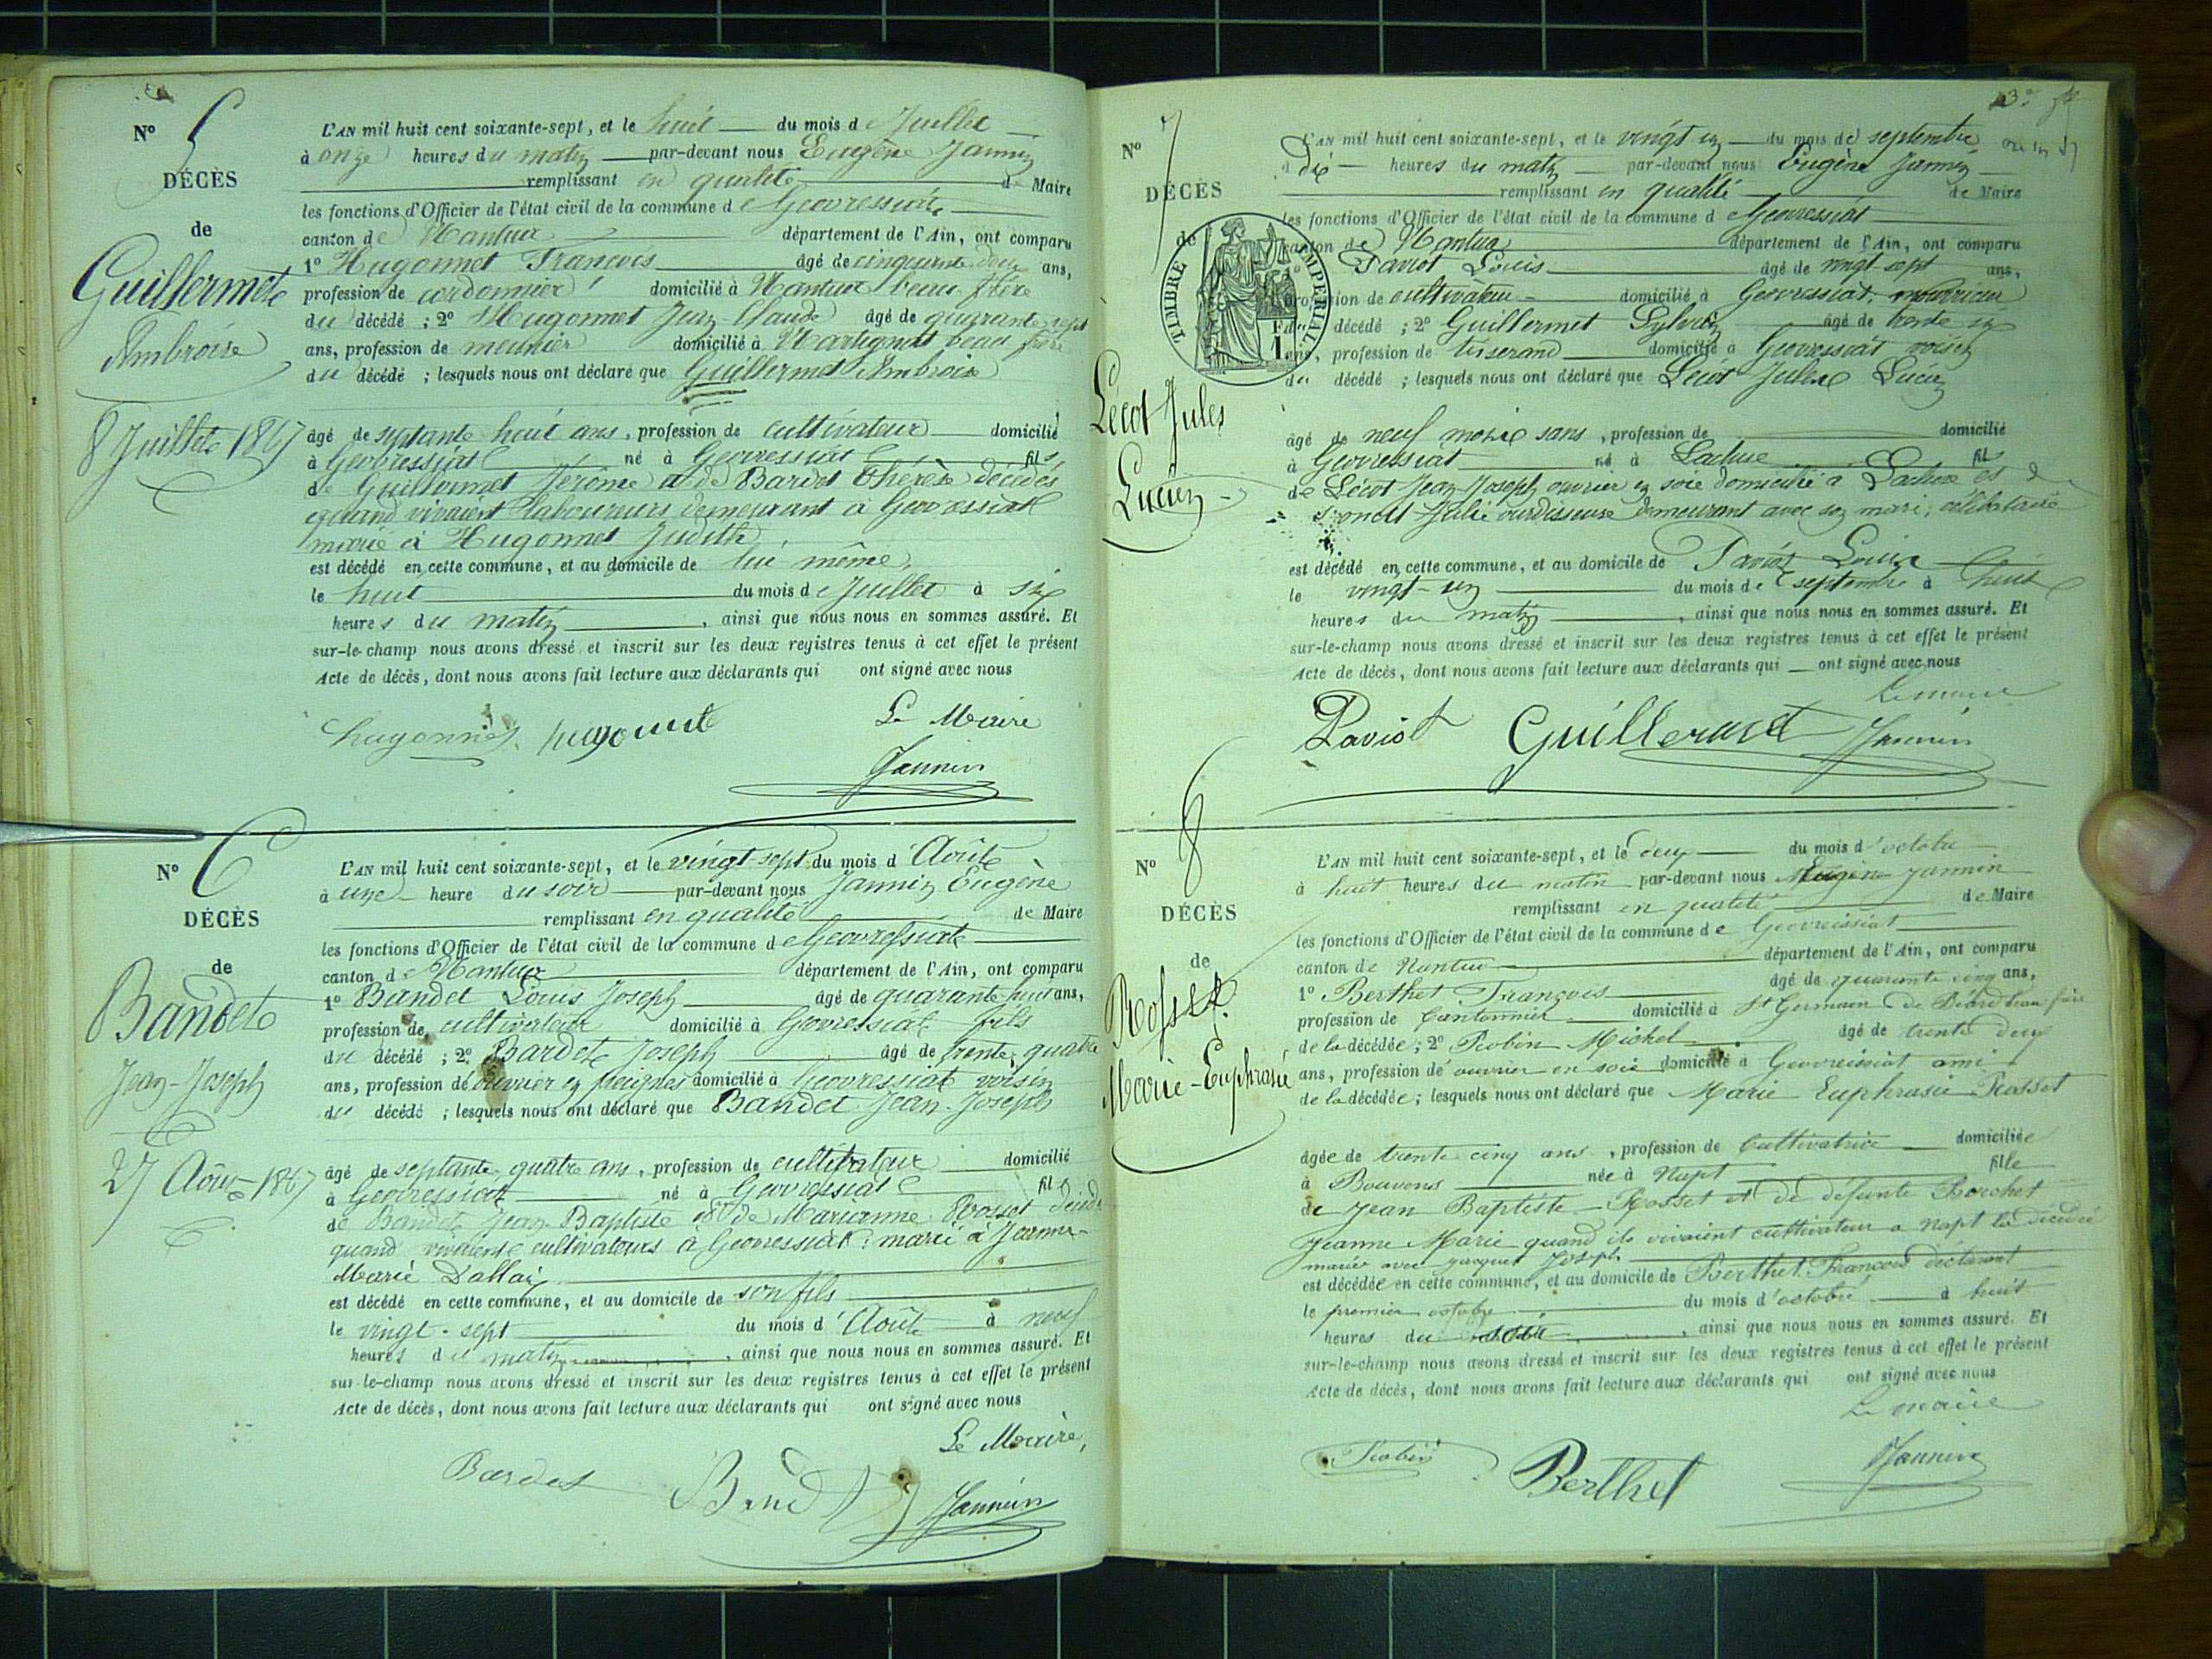 N° 5
DÉCÈS
de
Guillermet
Ambroise
8 Juillet 1867
L'AN mil huit cent soixante-sept, et le huit du mois de Juillet
à onze heures du matin par-devant nous Eugène Jannin
remplissant en qualité de Maire
les fonctions d'Officier de l'état civil de la commune de Geovressiat
canton de Nantua département de l'Ain, ont comparu
1° Hugonnet François âgé de cinquante deux ans,
profession de cordonnier domicilié à Nantua beau frère
du décédé ; 2° Hugonnet Jean-Claude âgé de quarante sept
ans, profession de meunier domicilié à Martignat beau frère
du décédé ; lesquels nous ont déclaré que Guillermet Ambroise
âgé de septante huit ans, profession de cultivateur domicilié
à Geovressiat né à Geovressiat fils
de Guillermet Jérôme et de Bardet Thérèse décédés
quand vivaient laboureurs demeurant à Geovressiat
marié à Hugonnet Judith
est décédé en cette commune, et au domicile de lui même,
le huit du mois de Juillet à six
heures du matin, ainsi que nous nous en sommes assuré. Et
sur-le-champ nous avons dressé et inscrit sur les deux registres tenus à cet effet le présent
Acte de décès, dont nous avons fait lecture aux déclarants qui ont signé avec nous
Le Maire
hugonnet hugonnet
Jannin
N° 6
DÉCÈS
de
Bandet
Jean-Joseph
27 Août 1867
L'AN mil huit cent soixante-sept, et le vingt-sept du mois d'Août
à une heure du soir par-devant nous Jannin Eugène
remplissant en qualité de Maire
les fonctions d'Officier de l'état civil de la commune de Geovressiat
canton de Nantua département de l'Ain, ont comparu
1° Bandet Louis Joseph âgé de quarante-huit ans,
profession de cultivateur domicilié à Geovressiat fils
du décédé ; 2° Bardet Joseph âgé de trente quatre
ans, profession de ouvrier en peignes domicilié à Geovressiat voisin
du décédé ; lesquels nous ont déclaré que Bandet Jean-Joseph
âgé de septante quatre ans, profession de cultivateur domicilié
à Geovressiat né à Geovressiat fils
de Bandet Jean-Baptiste et de Marianne Rosset
quand vivaient cultivateurs à Geovressiat : marié à Jeanne-
Marie Dallaz
est décédé en cette commune, et au domicile de son fils
le vingt-sept du mois d'Août à neuf
heures du matin, ainsi que nous nous en sommes assuré. Et
sur-le-champ nous avons dressé et inscrit sur les deux registres tenus à cet effet le présent
Acte de décès, dont nous avons fait lecture aux déclarants qui ont signé avec nous
Le Maire,
Bardet Bandet Jannin
N° 7
DÉCÈS
de
TIMBRE IMPÉRIAL
1
Lécot Jules
Lucien
L'AN mil huit cent soixante-sept, et le vingt un du mois de septembre
à dix heures du matin par-devant nous Eugène Jannin
remplissant en qualité de Maire
les fonctions d'Officier de l'état civil de la commune de Geovressiat
canton de Nantua département de l'Ain, ont comparu
Paviot Louis âgé de vingt sept ans,
profession de cultivateur domicilié à Geovressiat, nourricier
décédé ; 2° Guillermet Sylvain âgé de trente six
ans, profession de tisserand domicilié à Geovressiat voisin
du décédé ; lesquels nous ont déclaré que Lécot Jules Lucien
âgé de neuf mois sans, profession de domicilié
à Geovressiat né à Lacluse fils
de Lécot Jean-Joseph ouvrier en soie domicilié à Lacluse et de
Julie ourdisseuse demeurant avec son mari ; célibataire
est décédé en cette commune, et au domicile de Paviot Louis
le vingt-un du mois de septembre à huit
heures du matin, ainsi que nous nous en sommes assuré. Et
sur-le-champ nous avons dressé et inscrit sur les deux registres tenus à cet effet le présent
Acte de décès, dont nous avons fait lecture aux déclarants qui ont signé avec nous
Le maire
Paviot Guillermet Jannin
N° 8
DÉCÈS
de
Rosset
Marie-Euphrasie
L'AN mil huit cent soixante-sept, et le deux du mois d'octobre
à huit heures du matin par-devant nous Eugène Jannin
remplissant en qualité de Maire
les fonctions d'Officier de l'état civil de la commune de Geovreissiat
canton de Nantua département de l'Ain, ont comparu
1° Berthet François âgé de quarante cinq ans,
profession de Cantonnier domicilié à St Germain de Béard beau frère
de la décédée ; 2° Robin Michel âgé de trente deux
ans, profession de ouvrier en soie domicilié à Geovreissiat ami
de la décédée ; lesquels nous ont déclaré que Marie Euphrasie Rosset
âgée de trente cinq ans, profession de Cultivatrice domiciliée
à Bouvens née à Napt fille
de Jean Baptiste Rosset et de défunte Borchet
Jeanne Marie quand ils vivaient cultivateur a Napt la décédée
mariée avec jacquet Joseph
est décédée en cette commune, et au domicile de Berthet François déclarant
le premier octobre du mois d'octobre à huit
heures du soir, ainsi que nous nous en sommes assuré. Et
sur-le-champ nous avons dressé et inscrit sur les deux registres tenus à cet effet le présent
Acte de décès, dont nous avons fait lecture aux déclarants qui ont signé avec nous
Le maire
Robin Berthet Jannin